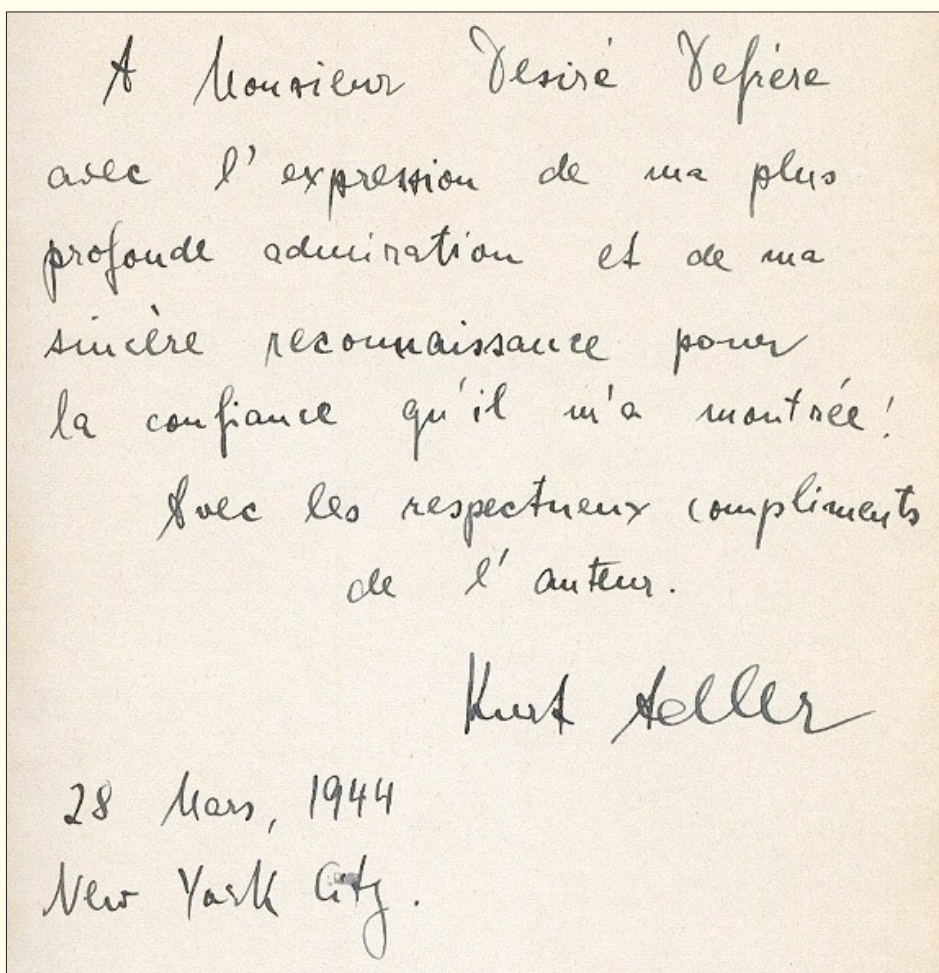 A Monsieur Désiré Defrère
avec l'expression de ma plus
profonde admiration et de ma
sincère reconnaissance pour
la confiance qu'il m'a montrée!
Avec les respectueux compliments
de l'auteur.
Kurt Adler
28 Mars, 1944
New York City.